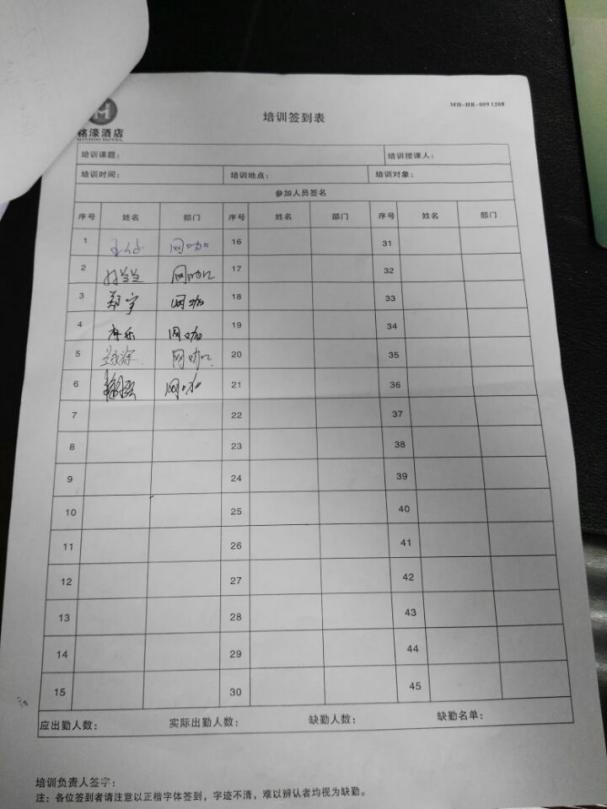 MH-HR-009 1208
铭濠酒店
培训签到表
培训课题： 培训授课人：
培训时间： 培训地点： 培训对象：
参加人员签名
序号 姓名 部门 序号 姓名 部门 序号 姓名 部门
1 网咖 16 31
2 网咖 17 32
3 郑宇 网咖 18 33
4 网咖 19 34
5 网咖 20 35
6 网咖 21 36
7 22 37
8 23 38
9 24 39
10 25 40
11 26 41
12 27 42
13 28 43
14 29 44
15 30 45
应出勤人数： 实际出勤人数： 缺勤人数： 缺勤名单：
培训负责人签字：
注：各位签到者请注意以正楷字体签到，字迹不清，难以辨认者均视为缺勤。